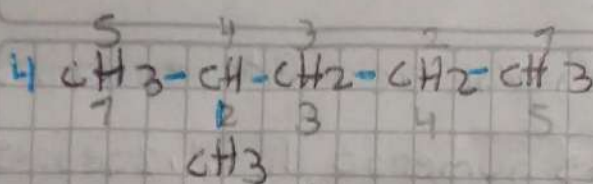 5 4 3 2 1
4 CH3-CH-CH2-CH2-CH3
1 2 3 4 5
CH3